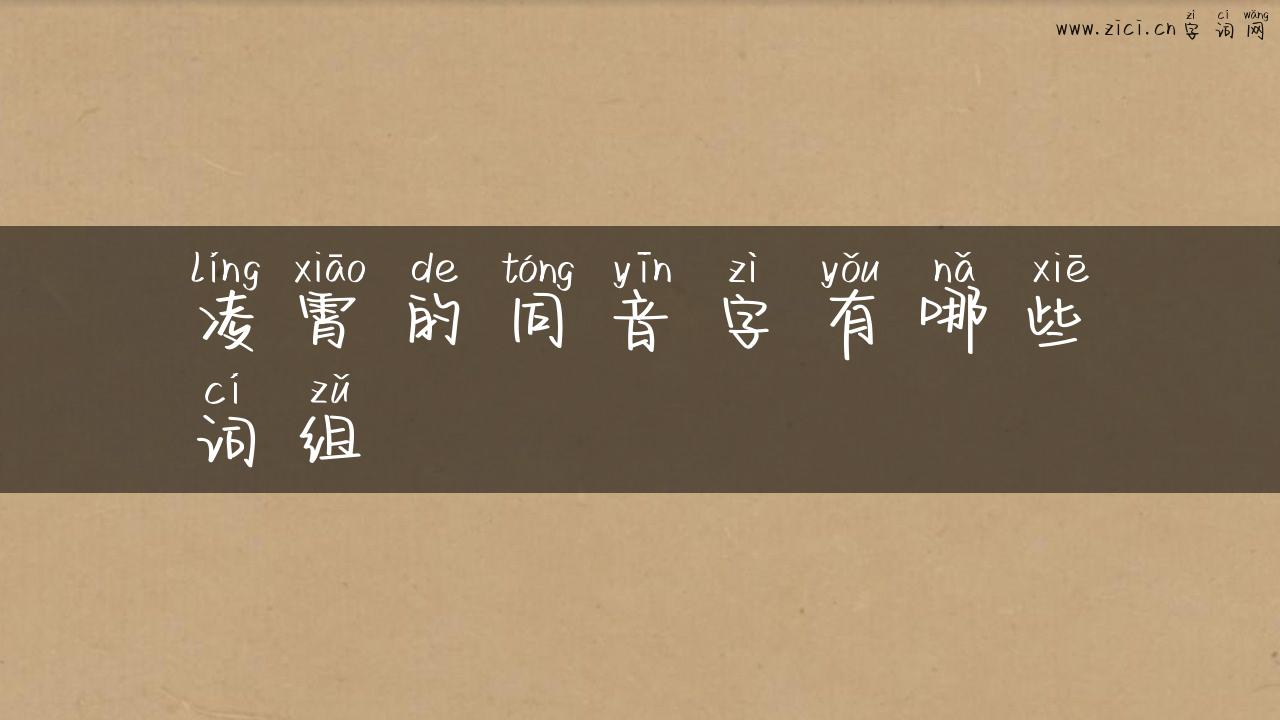 zì cí wǎng
www.zici.cn 字词网
líng xiāo de tóng yīn zì yǒu nǎ xiē
凌霄的同音字有哪些
cí zǔ
词组